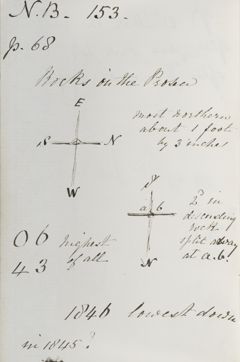 N.B. 153.
p. 68
Rocks on the
E
S N
W
most northern
about 1 foot
by 3 inches
S
a b
N
2 in
descending
rock
split away
at a.b.
06 highest
43 of all
1846 lowest down
in 1845?